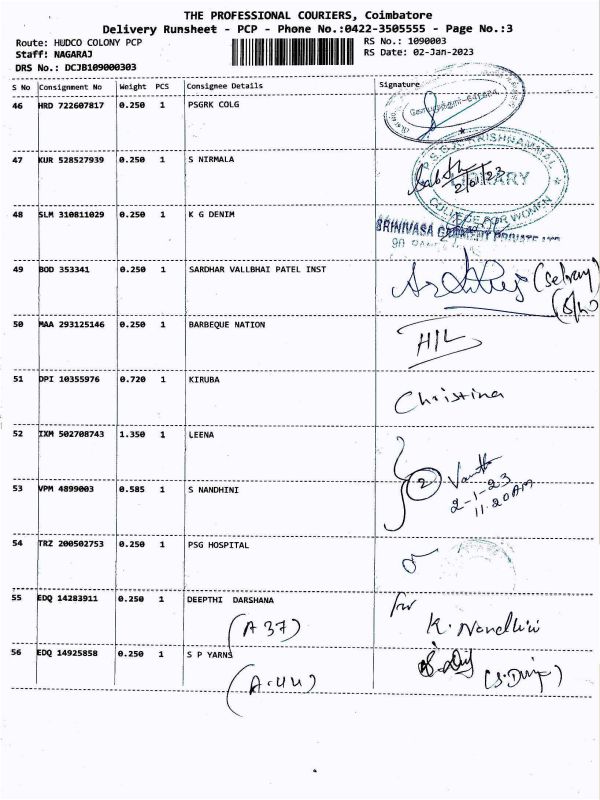 THE PROFESSIONAL COURIERS, Coimbatore
Delivery Runsheet - PCP - Phone No.:0422-3505555 - Page No.:3
Route: HUDCO COLONY PCP
Staff: NAGARAJ
DRS No.: DCJB109000303
RS No.: 1090003
RS Date: 02-Jan-2023
S No Consignment No Weight PCS Consignee Details Signature
46 HRD 722607817 0.250 1 PSGRK COLG
47 KUR 528527939 0.250 1 S NIRMALA
KRISHNAMMAL
LIBRARY
COLLEGE FOR WOMEN
48 SLM 310811029 0.250 1 K G DENIM
SRINIVASA GARMENT PRIVATE LTD
49 BOD 353341 0.250 1 SARDHAR VALLBHAI PATEL INST
50 MAA 293125146 0.250 1 BARBEQUE NATION
H/L
51 DPI 10355976 0.720 1 KIRUBA
Christina
52 IXM 502708743 1.350 1 LEENA
2
2-1-23
11.20AM
53 VPM 4899003 0.585 1 S NANDHINI
54 TRZ 200502753 0.250 1 PSG HOSPITAL
55 EDQ 14283911 0.250 1 DEEPTHI DARSHANA
for
(A 37)
K. Nandhini
56 EDQ 14925858 0.250 1 S P YARNS
(A.44)